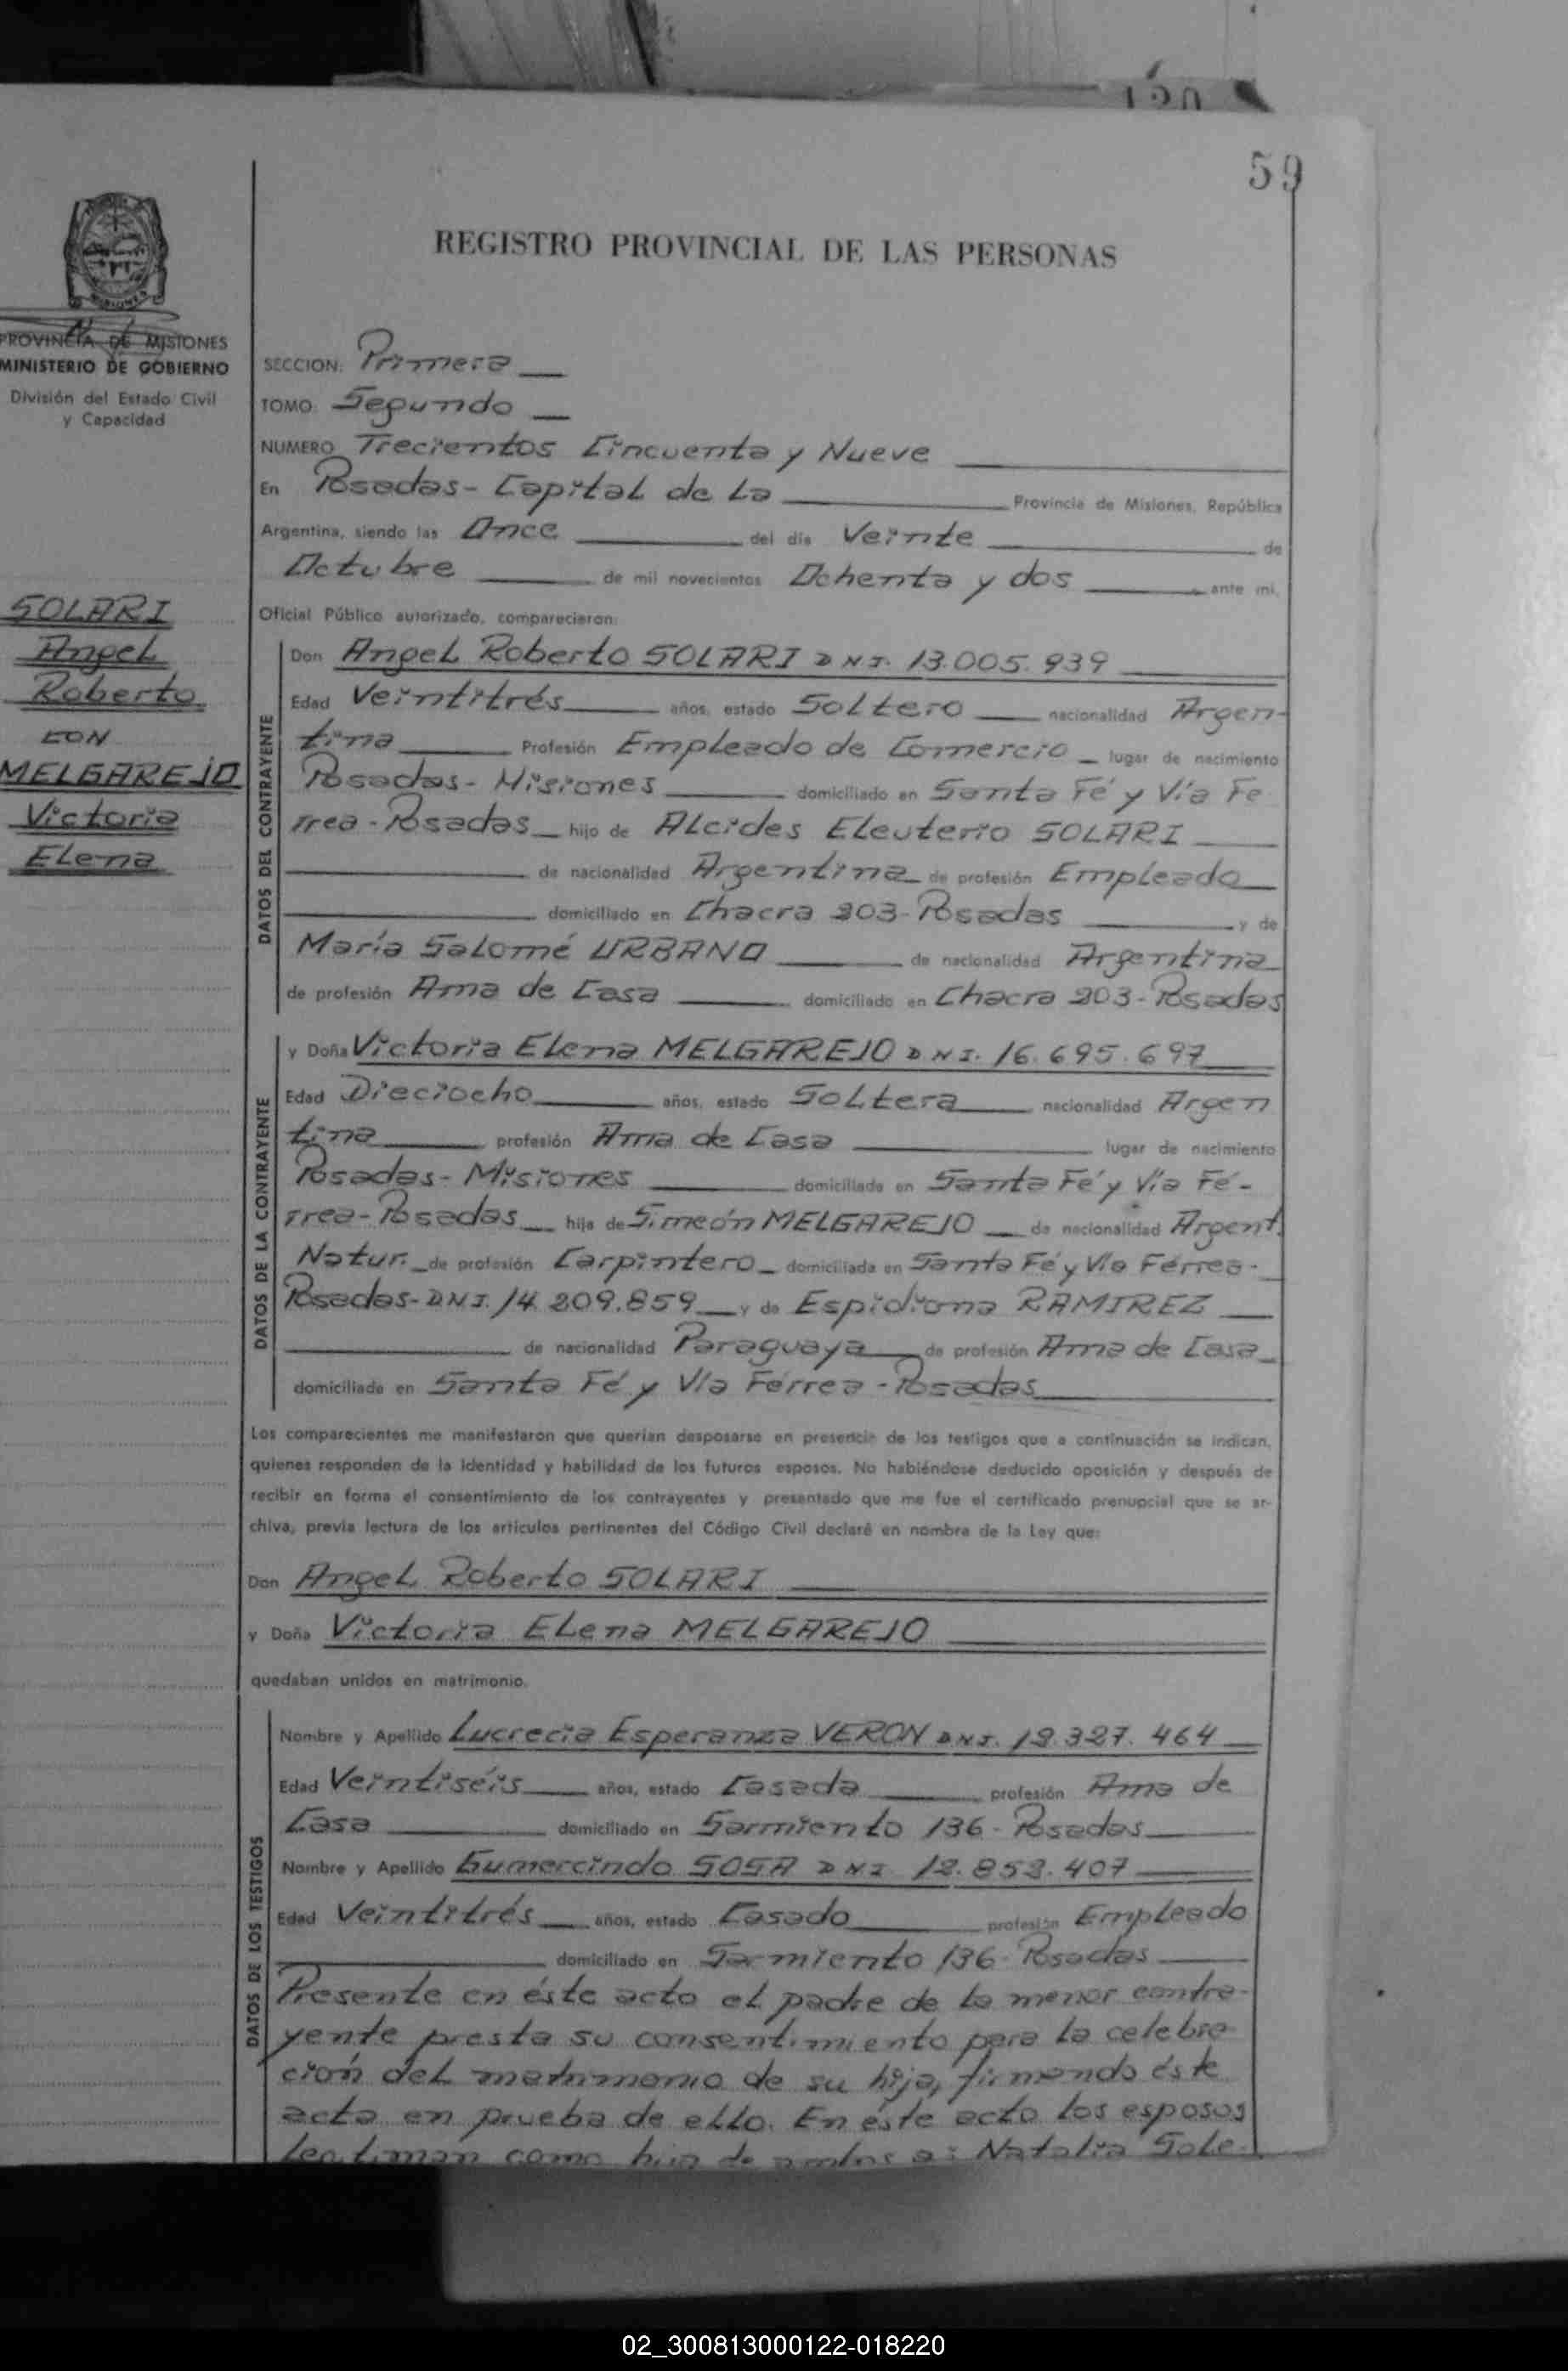 120
59
REGISTRO PROVINCIAL DE LAS PERSONAS
MISIONES
PROVINCIA DE MISIONES
MINISTERIO DE GOBIERNO
División del Estado Civil
y Capacidad
SOLARI
Angel
Roberto
CON
MELGAREJO
Victoria
Elena
SECCION: Primera
TOMO: Segundo
NUMERO Trecientos Cincuenta y Nueve
En Posadas - Capital de La Provincia de Misiones, República
Argentina, siendo las Once del día Veinte de
Octubre de mil novecientos Ochenta y dos ante mi,
Oficial Público autorizado, comparecieron:
DATOS DEL CONTRAYENTE
Don Angel Roberto SOLARI DNI. 13.005.939
Edad Veintitrés años, estado Soltero nacionalidad Argen-
tina Profesión Empleado de Comercio lugar de nacimiento
Posadas - Misiones domiciliado en Santa Fé y Vía Fe
rrea - Posadas hijo de Alcides Eleuterio SOLARI
de nacionalidad Argentina de profesión Empleado
domiciliado en Chacra 203 - Posadas y de
María Salomé URBANO de nacionalidad Argentina
de profesión Ama de Casa domiciliado en Chacra 203 - Posadas
DATOS DE LA CONTRAYENTE
y Doña Victoria Elena MELGAREJO DNI. 16.695.697
Edad Dieciocho años, estado Soltera nacionalidad Argen
tina profesión Ama de Casa lugar de nacimiento
Posadas - Misiones domiciliada en Santa Fé y Vía Fé-
rrea - Posadas hija de Simeón MELGAREJO de nacionalidad Argent.
Natur. de profesión Carpintero domiciliada en Santa Fé y Vía Férrea -
Posadas - DNI. 14.209.859 y de Espidiona RAMIREZ
de nacionalidad Paraguaya de profesión Ama de Casa
domiciliada en Santa Fé y Vía Férrea - Posadas
Los comparecientes me manifestaron que querían desposarse en presencia de los testigos que a continuación se indican,
quienes responden de la Identidad y habilidad de los futuros esposos. No habiéndose deducido oposición y después de
recibir en forma el consentimiento de los contrayentes y presentado que me fue el certificado prenupcial que se ar-
chiva, previa lectura de los artículos pertinentes del Código Civil declaré en nombre de la Ley que:
Don Angel Roberto SOLARI
y Doña Victoria Elena MELGAREJO
quedaban unidos en matrimonio.
DATOS DE LOS TESTIGOS
Nombre y Apellido Lucrecia Esperanza VERON DNI. 12.327.464
Edad Veintiséis años, estado Casada profesión Ama de
Casa domiciliado en Sarmiento 136 - Posadas
Nombre y Apellido Gumercindo SOSA DNI 12.852.407
Edad Veintitrés años, estado Casado profesión Empleado
domiciliado en Sarmiento 136 - Posadas
Presente en éste acto el padre de la menor contra-
yente presta su consentimiento para la celebra-
ción del matrimonio de su hija, firmando éste
acta en prueba de ello. En éste acto los esposos
legitiman como hija de ambos a: Natalia Sole-
02_300813000122-018220